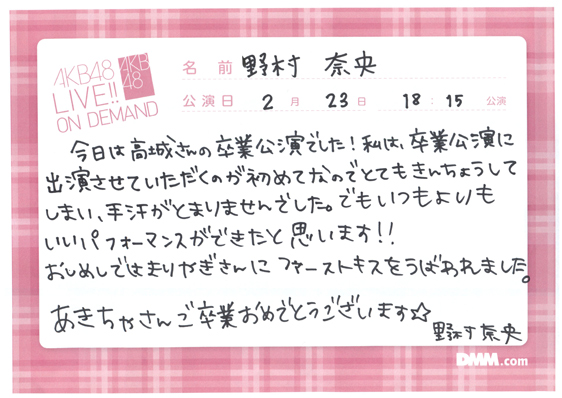 AKB48
LIVE!!
ON DEMAND
AKB
48
名前 野村 奈央
公演日 2月 23日 18:15 公演
今日は高城さんの卒業公演でした!私は、卒業公演に
出演させていただくのが初めてなのでとてもきんちょうして
しまい、手汗がとまりませんでした。でもいつもよりも
いいパフォーマンスができたと思います!!
おしめしではまりやぎさんにファーストキスをうばわれました。
あきちゃさんご卒業おめでとうございます☆
野村奈央
DMM.com